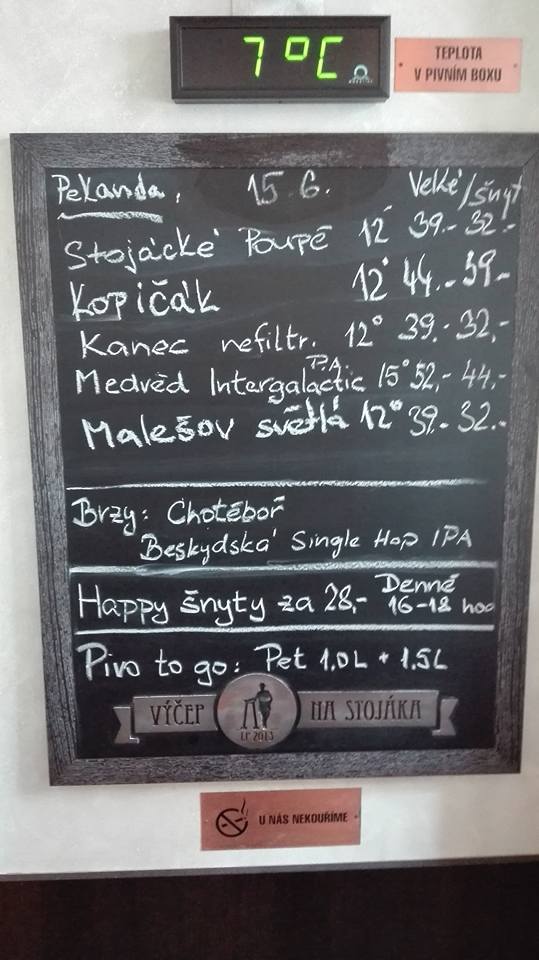 7°C
TEPLOTA
V PIVNÍM BOXU
Pekanda, 15.6. Velké/šnyt
Stojácké Poupě 12° 39.- 32.-
Kopičák 12° 44.- 39.-
Kanec nefiltr. 12° 39.- 32,-
Medvěd Intergalactic IPA 15° 52,- 44.-
Malešov světlá 12° 39.- 32.-
Brzy: Chotěboř
Beskydská Single Hop IPA
Happy šnyty za 28,- Denně
16-18 hod
Pivo to go: Pet 1,0L + 1,5L
VÝČEP NA STOJÁKA
LP 2013
U NÁS NEKOUŘÍME